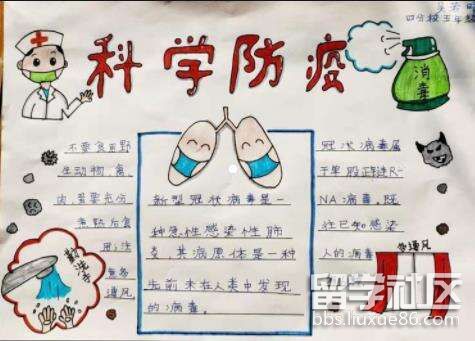 四分校五年级
科学防疫
消毒
不要食用野
生动物,禽
肉蛋要充分
煮熟后食
用,注
意多
通风。
新型冠状病毒是一
种急性感染性肺
炎,其病原体是一种
先前未在人类中发现
的病毒。
冠状病毒属
于单股正链R-
NA病毒,既
往已知感染
人的病毒
勤洗手
多通风
留学社区
bbs.liuxue86.com